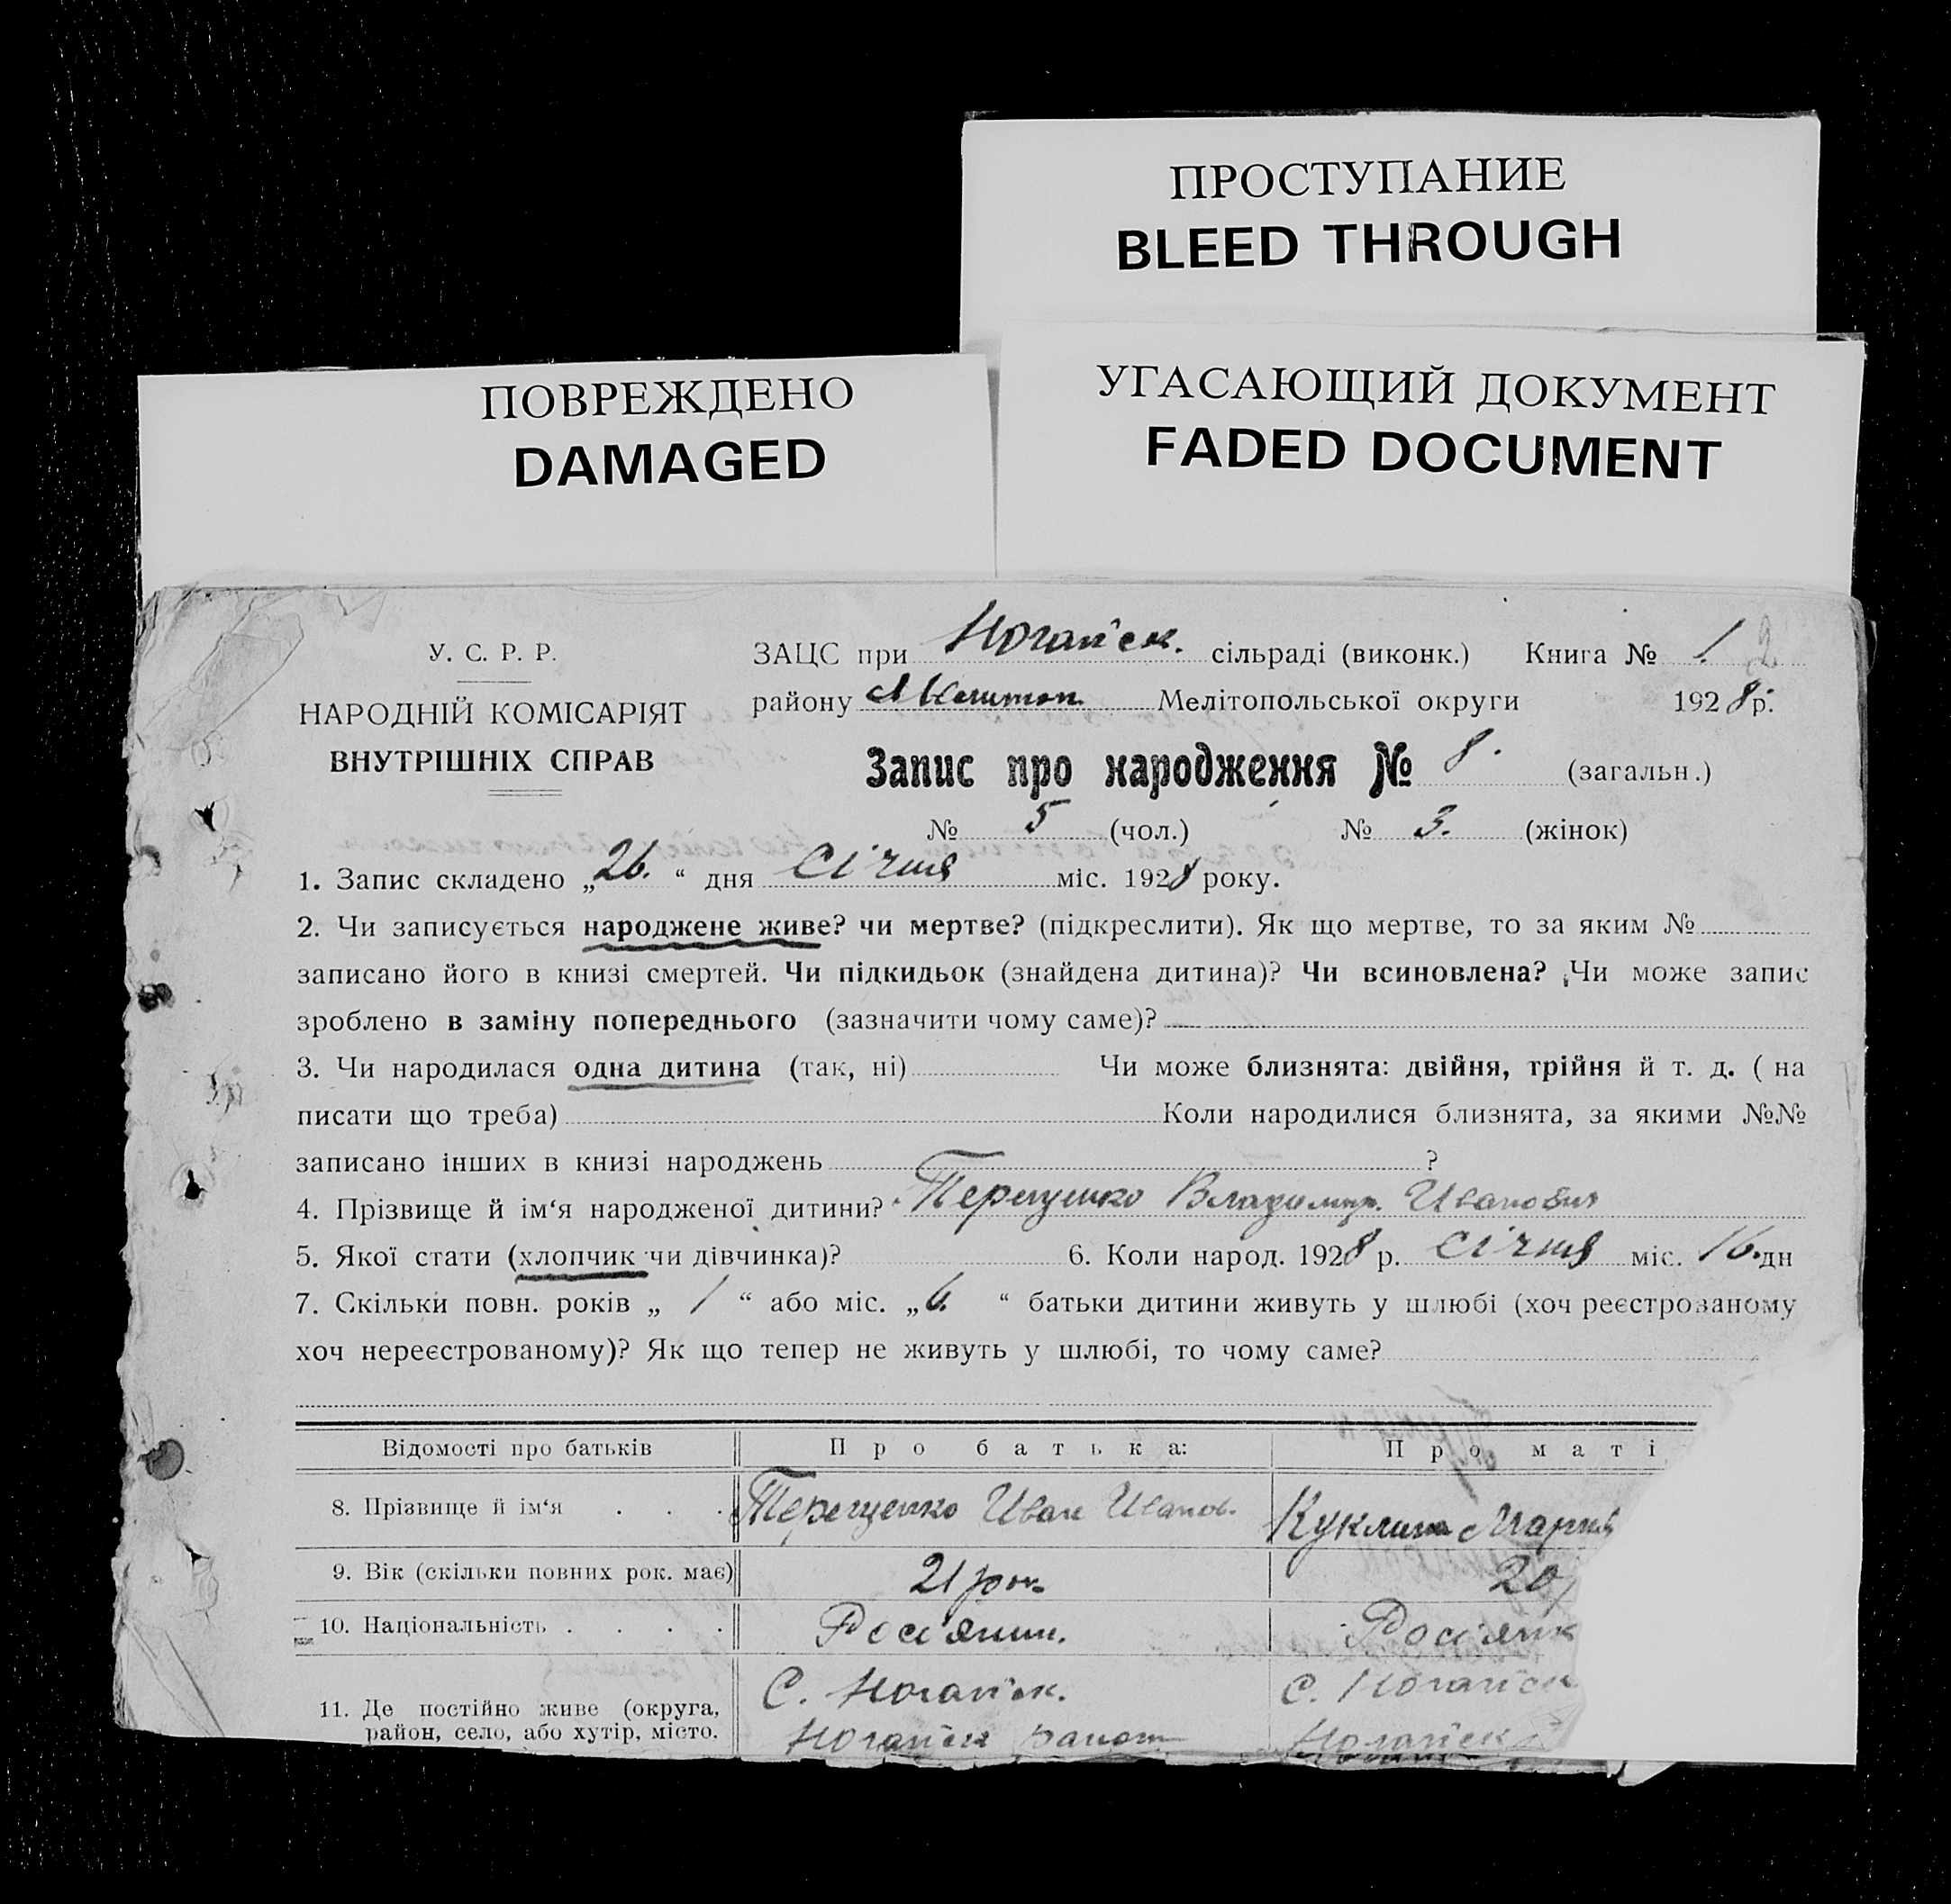 ПРОСТУПАНИЕ
BLEED THROUGH
ПОВРЕЖДЕНО
DAMAGED
УГАСАЮЩИЙ ДОКУМЕНТ
FADED DOCUMENT
У. С. Р. Р.
НАРОДНІЙ КОМІСАРІЯТ
ВНУТРІШНІХ СПРАВ
ЗАЦС при Ногайск. сільраді (виконк.) Книга № 1 2
району Мелітопольської округи 1928 р.
Запис про народження № 8. (загальн.)
№ 5 (чол.) № 3. (жінок)
1. Запис складено „26. “ дня Січня міс. 1928 року.
2. Чи записується народжене живе? чи мертве? (підкреслити). Як що мертве, то за яким №
записано його в книзі смертей. Чи підкидьок (знайдена дитина)? Чи всиновлена? Чи може запис
зроблено в заміну попереднього (зазначити чому саме)?
3. Чи народилася одна дитина (так, ні) Чи може близнята: двійня, трійня й т. д. ( на
писати що треба) Коли народилися близнята, за якими №№
записано інших в книзі народжень ?
4. Прізвище й ім‘я народженої дитини? Терещенко Владимир. Иванович
5. Якої стати (хлопчик чи дівчинка)? 6. Коли народ. 1928 р. Січня міс. 16. дн
7. Скільки повн. років „ 1 “ або міс. „ 6. “ батьки дитини живуть у шлюбі (хоч реєстрованому
хоч нереєстрованому)? Як що тепер не живуть у шлюбі, то чому саме?
Відомості про батьків Про батька: Про маті
8. Прізвище й ім‘я . . . Терещенко Иван Иванов. Куклина Мария
9. Вік (скільки повних рок. має) 21 рок. 20
10. Національність . . . . Росіянин. Росіянк
11. Де постійно живе (округа, район, село, або хутір, місто. С. Ногайск. Ногайск С. Ногайск Ногайск